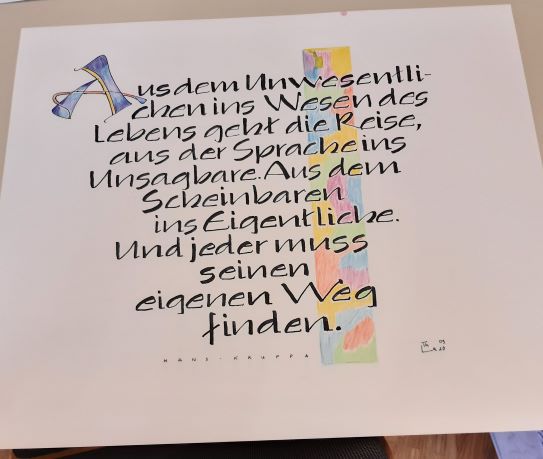 Aus dem Unwesentli-
chen ins Wesen des
Lebens geht die Reise,
aus der Sprache ins
Unsagbare. Aus dem
Scheinbaren
ins Eigentliche.
Und jeder muss
seinen
eigenen Weg
finden.
HANS-KRUPPA